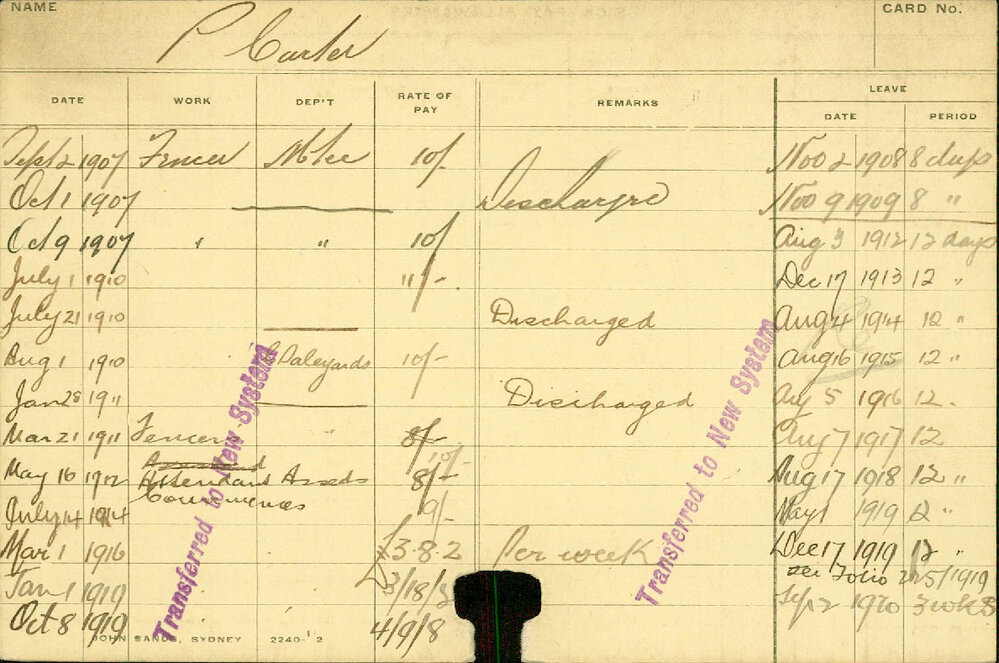 NAME P Carter CARD No.
DATE WORK DEP'T RATE OF PAY REMARKS LEAVE
DATE PERIOD
Sept 2 1907 Fencer M Lee 10/- Nov 2 1908 8 days
Oct 1 1907 Discharged Nov 9 1909 8 "
Oct 9 1907 " " 10/- Aug 3 1912 12 days
July 1 1910 11/- Dec 17 1913 12 "
July 21 1910 Discharged Aug 4 1914 12 "
Aug 1 1910 Saleyards 10/- Aug 16 1915 12 "
Jan 28 1911 Discharged Aug 5 1916 12 "
Mar 21 1911 Fencer " 8/- Aug 7 1917 12
10/-
May 16 1912 Attendant 8/- Aug 17 1918 12 "
Conveniences
July 14 1914 9/- May 1 1919 12 "
Mar 1 1916 £3.8.2 Per week Dec 17 1919 12 "
Jan 1 1919 £3/18/3 See Folio 225/1919
Oct 8 1919 4/9/8 Sep 2 1920 3 wks
JOHN SANDS, SYDNEY 2240-½
Transferred to New System
Transferred to New System